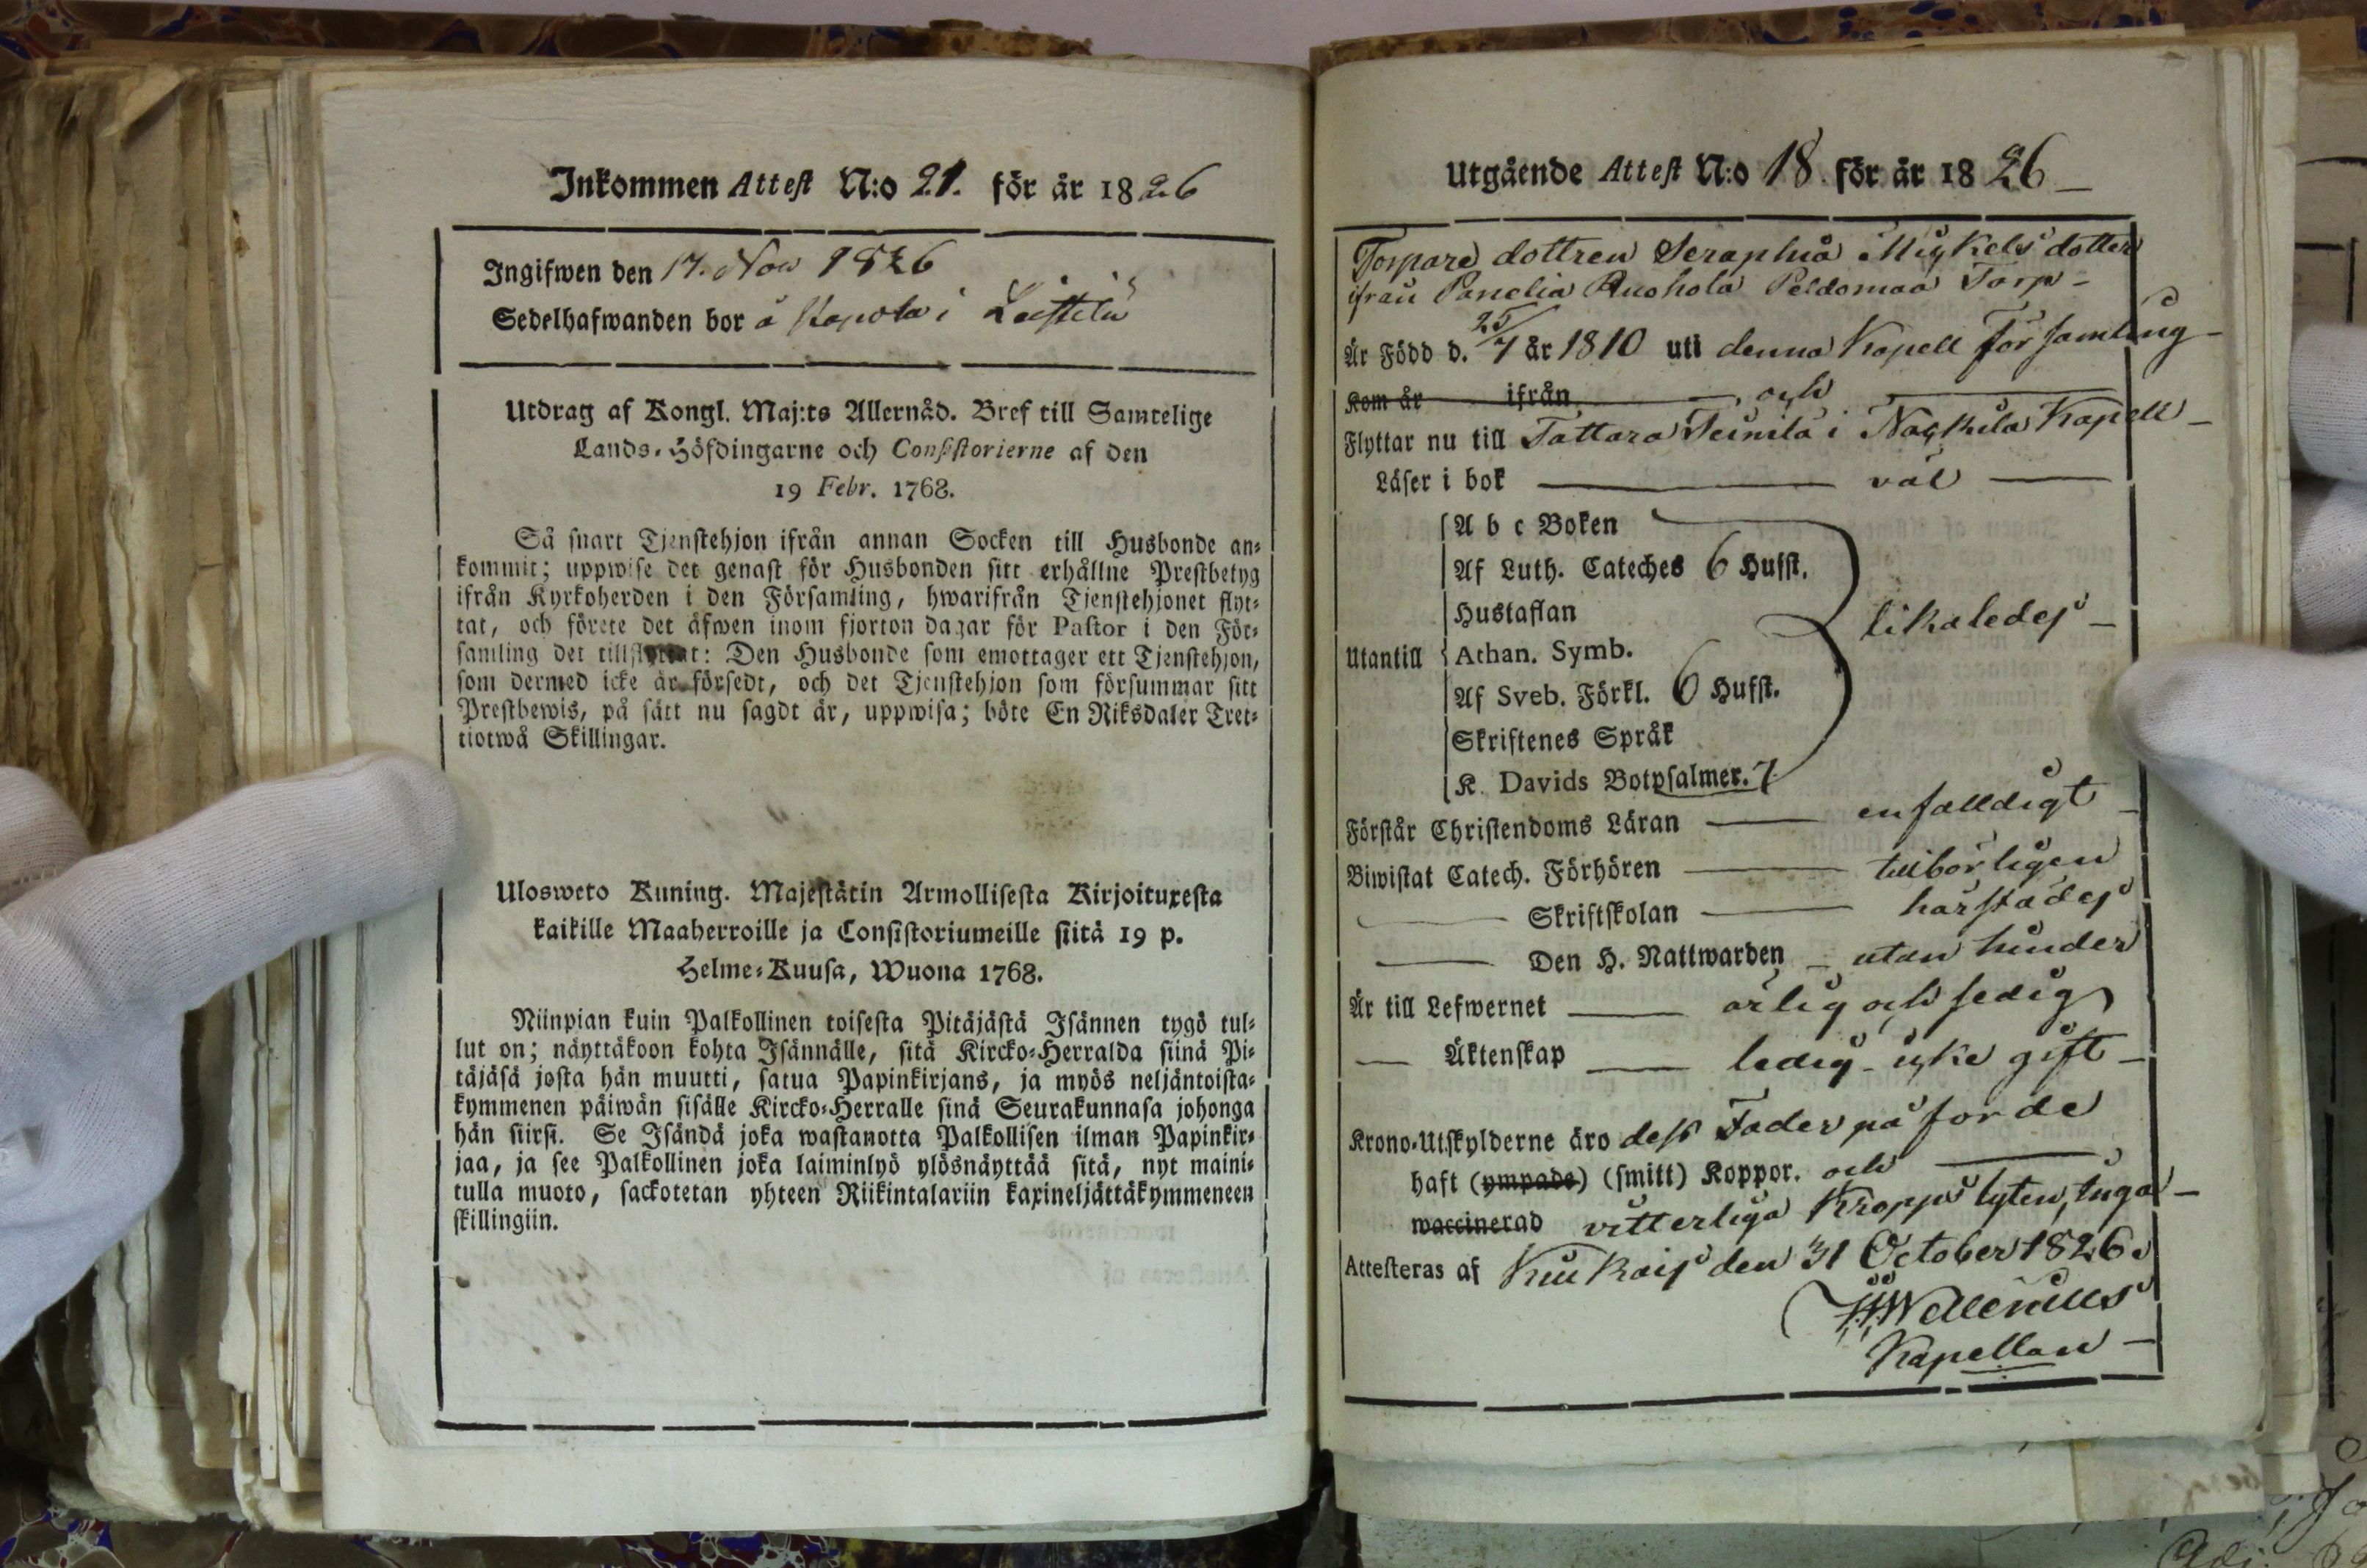 Inkommen Attest N:o 21. för år 1826
Ingifwen den 17. Nov 1826
Sedelhafwanden bor å i
Utdrag af Kongl. Maj:ts Allernåd. Bref till Samtelige
Lands-Höfdingarne och Consistorierne af den
19 Febr. 1768.
Så snart Tjenstehjon ifrån annan Socken till Husbonde an-
kommit; uppwise det genast för Husbonden sitt erhållne Prestbetyg
ifrån Kyrkoherden i den Församling, hwarifrån Tjenstehjonet flyt-
tat, och förete det äfwen inom fjorton dagar för Pastor i den För-
samling det tillflyttat: Den Husbonde som emottager ett Tjenstehjon,
som dermed icke är försedt, och det Tjenstehjon som försummar sitt
Prestbewis, på sätt nu sagdt är, uppwisa; böte En Riksdaler Tret-
tiotwå Skillingar.
Ulosweto Kuning. Majestätin Armollisesta Kirjoituxesta
kaikille Maaherroille ja Consistoriumeille siitä 19 p.
Helme-Kuusa, Wuona 1768.
Niinpian kuin Palkollinen toisesta Pitäjästä Isännen tygö tul-
lut on; näyttäkoon kohta Isännälle, sitä Kircko-Herralda siinä Pi-
täjäsä josta hän muutti, satua Papinkirjans, ja myös neljäntoista-
kymmenen päiwän sisälle Kircko-Herralle sinä Seurakunnasa johonga
hän siirsi. Se Isändä joka wastanotta Palkollisen ilman Papinkir-
jaa, ja see Palkollinen joka laiminlyö ylösnäyttää sitä, nyt maini-
tulla muoto, sackotetan yhteen Riikintalariin kaxineljättäkymmeneen
skillingiin.
Utgående Attest N:o 18 för år 1826
Torpare dottren Seraphia Mickels dotter
ifrån Panelia Ruohola Peldomaa Torp
Är Född d. 25/7 år 1810 uti denna Kapell Församling
Kom år ifrån och
Flyttar nu till Tattara Teinilä i Nackila Kapell
Läser i bok väl
A b c Boken
Af Luth. Cateches 6 Hufst.
Hustaflan
likaledes
Utantill Athan. Symb.
Af Sveb. Förkl. 6 Hufst.
Skriftenes Språk
K. Davids Botpsalmer. 7
Förstår Christendoms Läran enfalldigt
Biwistat Catech. Förhören tillbörligen
Skriftskolan härstädes
Den H. Nattwarden utan hinder
Är till Lefwernet ärlig och sedig
Äktenskap ledig icke gift
Krono-Utskylderne äro dess Fader påförde
haft (ympade) (smitt) Koppor. och
waccinerad vitterliga Kropps lyten, inga
Attesteras af Kiukais den 31 October 1826
Wallenius
Kapellan